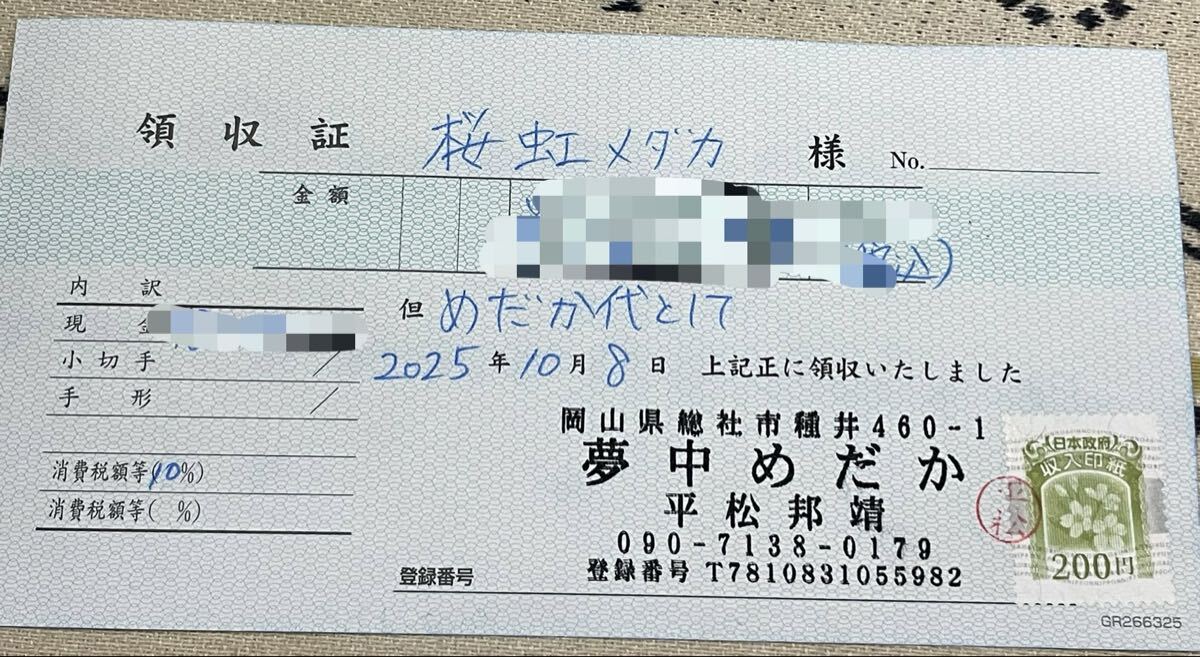 領収証 桜虹メダカ 様 No.
金額
税込)
内訳
現金
小切手
手形
消費税額等(10%)
消費税額等( %)
但 めだか代として
2025年10月8日 上記正に領収いたしました
岡山県総社市種井460-1
夢中めだか
平松邦靖
090-7138-0179
登録番号 登録番号 T7810831055982
平松
日本政府
収入印紙
200円
GR266325